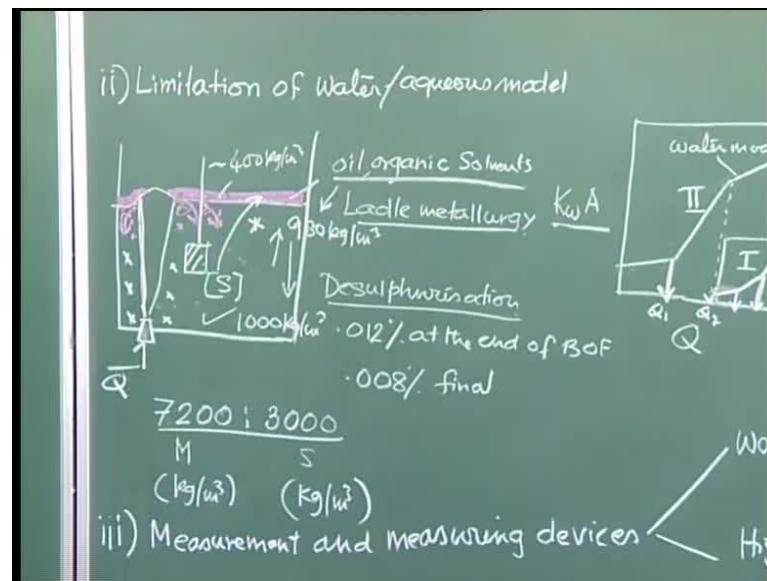 ii) Limitation of water/aqueous model
~400kg/m³
oil, organic Solvents
Ladle metallurgy
KwA
930kg/m³
[S]
1000kg/m³
Desulphurisation
.012% at the end of BOF
.008% final
Q
7200 : 3000
M S
(kg/m³) (kg/m³)
iii) Measurement and measuring devices
water
II
I
Q₁ Q₂
Q